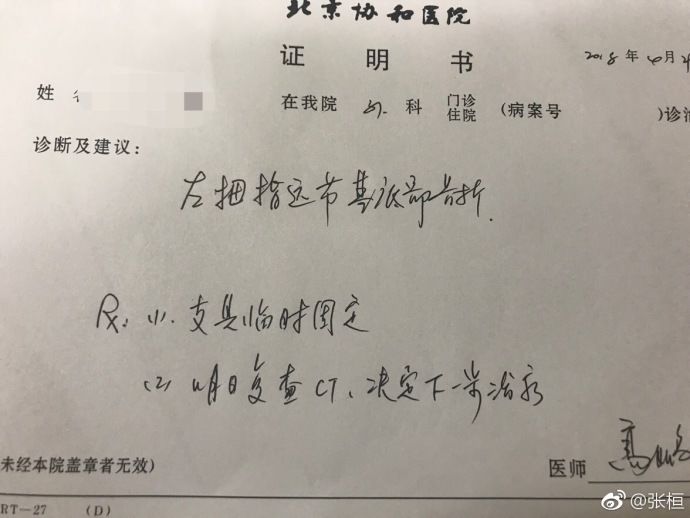 北京协和医院
证明书
2018年 月
姓
在我院 科 门诊 住院 (病案号 )诊
诊断及建议:
左拇指远节基底部骨折.
Rx: (1). 支具临时固定
(2) 明日复查CT、决定下一步治疗
未经本院盖章者无效)
医师 高
RT-27 (D)
@张桓